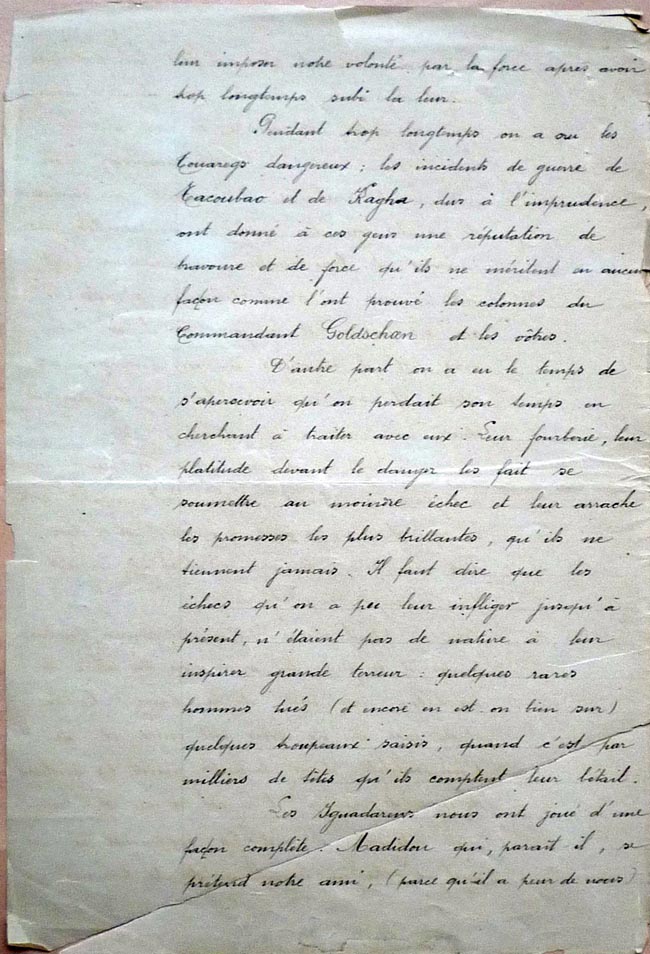 leur imposer notre volonté par la force après avoir
trop longtemps subi la leur.
Pendant trop longtemps on a cru les
Touaregs dangereux ; les incidents de guerre de
Tacoubao et de Kagha, dus à l'imprudence,
ont donné à ces gens une réputation de
bravoure et de force qu'ils ne méritent en aucun
façon comme l'ont prouvé les colonnes du
Commandant Goldschoen et les vôtres.
D'autre part on a eu le temps de
s'apercevoir qu'on perdait son temps en
cherchant à traiter avec eux. Leur fourberie, leur
platitude devant le danger les fait se
soumettre au moindre échec et leur arrache
les promesses les plus brillantes, qu'ils ne
tiennent jamais. Il faut dire que les
échecs qu'on a pu leur infliger jusqu'à
présent, n'étaient pas de nature à leur
inspirer grande terreur : quelques rares
hommes tués (et encore en est-on bien sur)
quelques troupeaux saisis, quand c'est par
milliers de têtes qu'ils comptent leur bétail.
Les Iguadarens nous ont joué d'une
façon complète. Madidou qui, parait il, se
prétend notre ami, (parce qu'il a peur de nous)